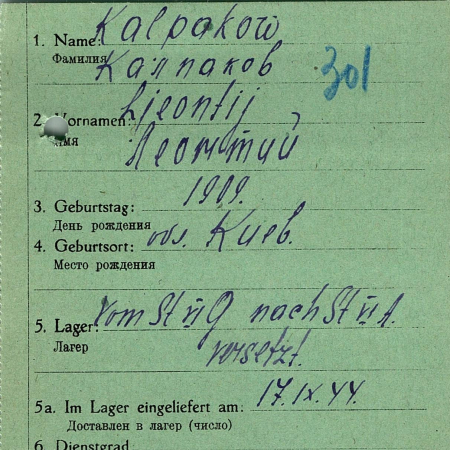 Kalpakow
1. Name:
Фамилия Калпаков
301
Ljeontij
2. Vornamen:
Имя Леонтий
3. Geburtstag: 1909.
День рождения
4. Geburtsort: обл. Киев.
Место рождения
5. Lager: vom St VI G nach St VI A.
Лагер versetzt.
5a. Im Lager eingeliefert am: 17.IX.44.
Доставлен в лагер (число)
6. Dienstgrad